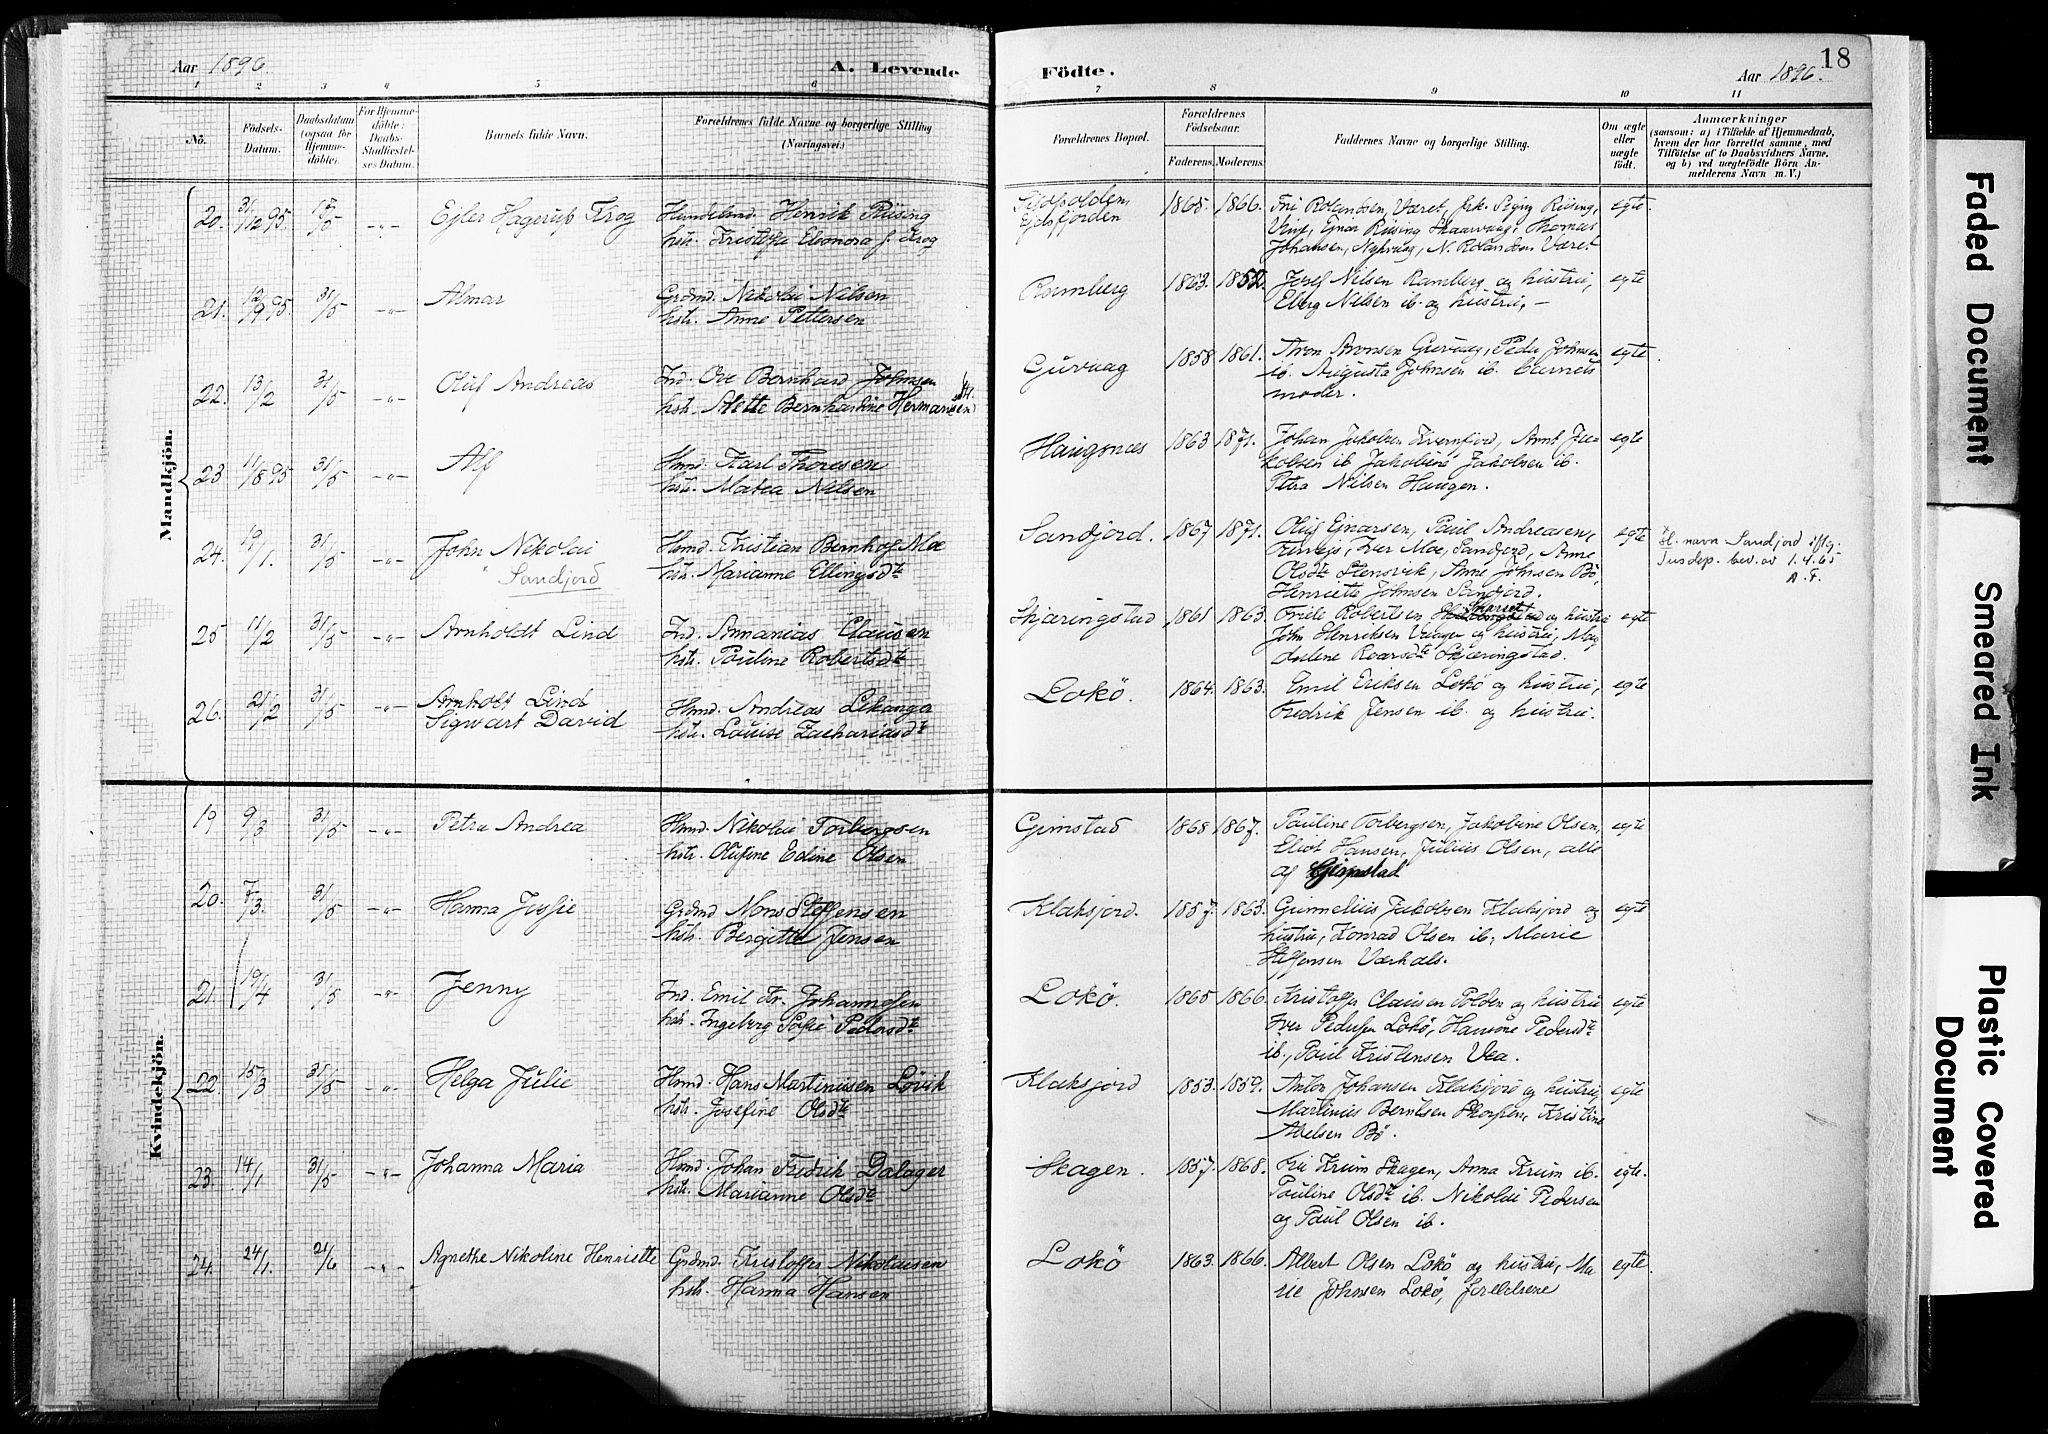 Aar 1896.
A. Levende
Födte.
Aar 1896.
18
1 2 3 4 5 6 7 8 9 10 11
Nö.
Födsels-Datum.
Daabsdatum (ogsaa för Hjemme-döbte).
For Hjemme-döbte: Daabs-Stadfæstel-ses Datum.
Barnets fulde Navn.
Forældrenes fulde Navne og borgerlige Stilling (Næringsvei.)
Forældrenes Bopæl.
Forældrenes Födselsaar.
Faderens. Moderens.
Faddernes Navne og borgerlige Stilling.
Om ægte eller uægte födt.
Anmærkninger
(saasom: a) i Tilfælde af Hjemmedaab, hvem der har forrettet samme, med Tilföielse af to Daabsvidners Navne, og b) ved uægtefödte Börn An-melderens Navn m. V.)
Mandkjön.
20. 31/12 95. Ejler Hagerup Krog
Handelsmd. Henrik Riising
hstr. Eleonora f. Krog
Eidsfjorden
1865. 1866.
egte.
21. 12/9 95. 31/5 Almar
Grdmd. Nikolai Nilsen
hstr. Anne Pettersen
Ramberg
1863. 1852.
Josef Nilsen Ramberg og hustru,
Eberg Nilsen ib. og hustru,
egte
22. 13/2 31/5 Oluf Andreas
Ind. Ove Bernhard Johnsen
hstr. Alette Bernhardine Hermansen
Guvaag
1858 1861.
Aron Aronsen Guvaag, Peder Johnsen
ib. Augusta Johnsen ib. barnets
moder.
egte.
23 11/8 95 31/5 Alf
Hmd. Karl Thoresen
hstr. Matea Nilsen
Haugsnæs
1863 1871.
Johan Jakobsen Kvernfjord, Arnt Ja-
kobsen ib. Jakobine Jakobsen ib.
Petra Nilsen Haugen.
egte
24. 19/1. 31/5 John Nikolai
Sandjord
Hmd. Kristian Bernhof Moe
hstr. Marianne Ellingsdtr
Sandjord.
1867 1871.
Oluf Ejnarsen, Paul Andreasen,
Iver Moe, Sandjord, Anne
Olsdtr Stensvik, Anne Johnsen Bö,
Henriette Johnsen Sandjord.
egte
sl. navn Sandjord iflg.
Jusdep. bev. av 1.4.65
A.F.
25 11/2 31/5 Arnholdt Lind
Ind. Annanias Clausen
hstr. Pauline Robertsdtr
Skjæringstad
1861 1863.
Robertsen og hustru
John Henriksen og hustru, Mag
dalene Roarsdtr Skjæringstad.
egte
26. 21/2 31/5 Arnholt Lind
Sigwart David
Hmd. Andreas Lekanga
hstr. Louise Zachariasdtr
Lokö.
1864. 1863.
Emil Eriksen Lokö og hustru,
Fredrik Jensen ib. og hustru.
egte
Kvindekjön.
19 9/3 31/5 Petra Andrea
Hmd. Nikolai Torbergsen
hstr. Olufine Edine Olsen
Gimstad
1868 1867.
Pauline Torbergsen, Jakobine Olsen,
Eliot Hansen, Julius Olsen, alle
af Gimstad
egte
20. 7/3. 31/5 Hanna Josfie
Grdmd Mons Steffensen
hstr. Bergitte Jensen
Klaksjord.
1857. 1863.
Gunnelius Jakobsen Klaksjord og
hustru, Konrad Olsen ib., Marie
Steffensen Værhals.
egte
21. 19/4 31/5 Jenny
Ind. Emil Fr. Johannessen
hstr. Ingeborg Sofie Pedersdtr
Lokö.
1865 1866.
Kristoffer Clausen Polden og hustru
Iver Pedersen Lokö, Hansine Pedersdtr
ib., Paul Kristensen Vea.
egte
22. 15/3 31/5 Helga Julie
Hmd. Hans Martinusen Lövik
hstr. Josefine Olsdtr
Klaksjord
1853. 1859.
Anton Johansen Klaksjord og hustru,
Martinus Berntsen Skorpen, Kristine
Abelsen Bö.
egte
23. 14/1 31/5 Johanna Maria
Hmd. Johan Fredrik Dalager
hstr. Marianne Olsdtr
Skagen.
1857. 1868.
Fru Krum Skagen, Anna Krum ib.
Pauline Olsdtr ib. Nikolai Pedersen
og Paul Olsen ib.
egte.
24. 24/1. 21/6 Agnethe Nikoline Henriette
Grdmd. Kristoffer Nikolaisen
hstr. Hanna Hansen
Lokö
1863. 1866.
Albert Olsen Lokö og hustru, Ma
rie Johnsen Lokö, forældrene
egte.
Faded Document
Smeared Ink
Plastic Covered Document